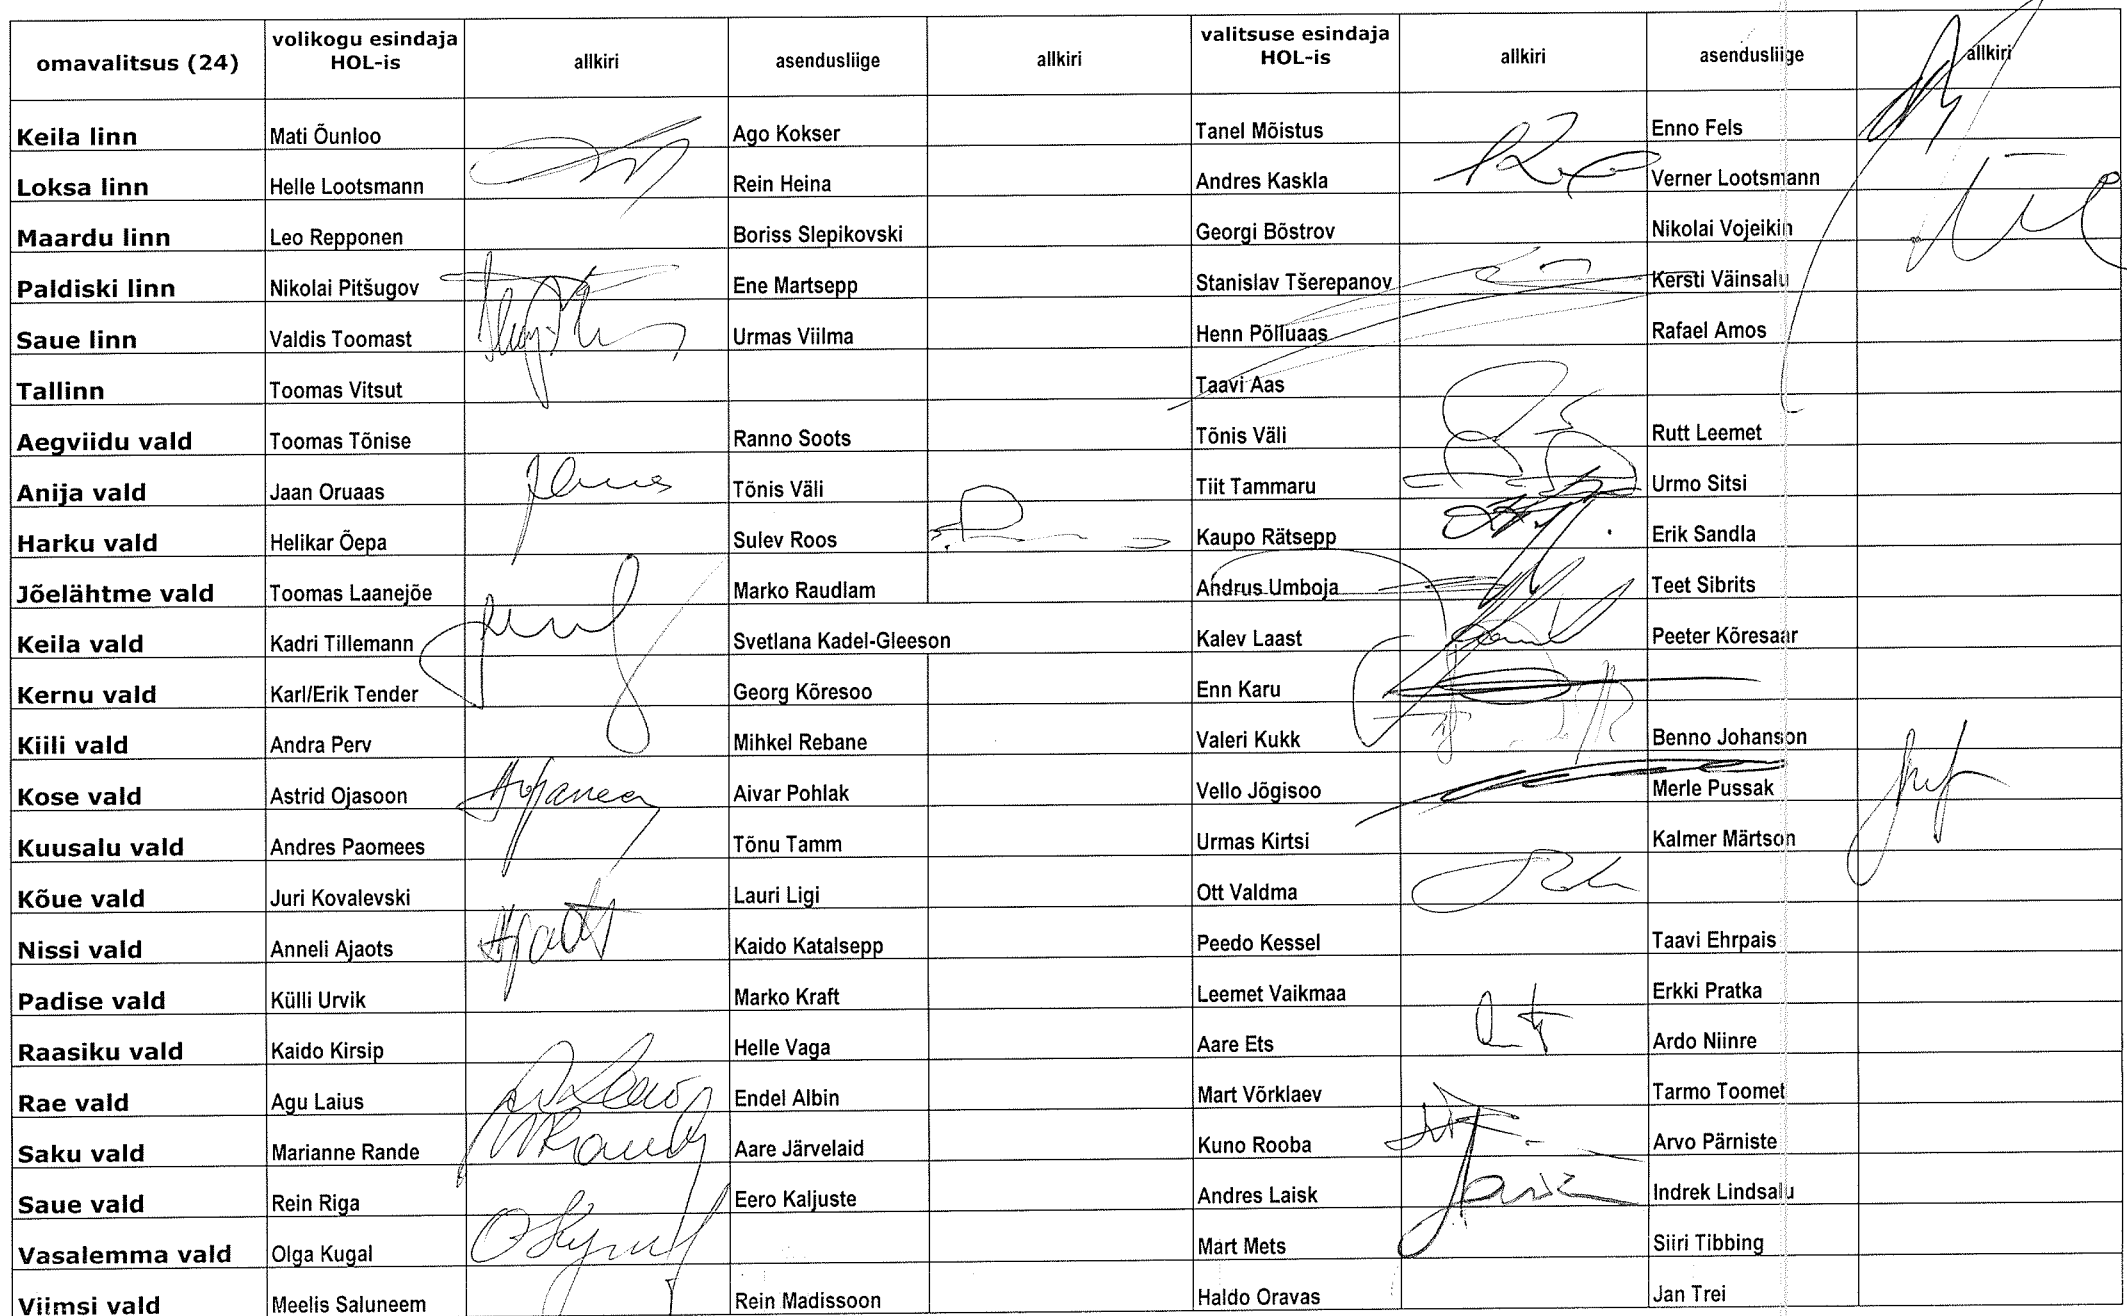 omavalitsus (24) volikogu esindaja HOL-is allkiri asendusliige allkiri valitsuse esindaja HOL-is allkiri asendusliige allkiri
Keila linn Mati Õunloo Ago Kokser Tanel Mõistus Enno Fels
Loksa linn Helle Lootsmann Rein Heina Andres Kaskla Verner Lootsmann
Maardu linn Leo Repponen Boriss Slepikovski Georgi Bõstrov Nikolai Vojeikin
Paldiski linn Nikolai Pitšugov Ene Martsepp Stanislav Tšerepanov Kersti Väinsalu
Saue linn Valdis Toomast Urmas Viilma Henn Põlluaas Rafael Amos
Tallinn Toomas Vitsut Taavi Aas
Aegviidu vald Toomas Tõnise Ranno Soots Tõnis Väli Rutt Leemet
Anija vald Jaan Oruaas Tõnis Väli Tiit Tammaru Urmo Sitsi
Harku vald Helikar Õepa Sulev Roos Kaupo Rätsepp Erik Sandla
Jõelähtme vald Toomas Laanejõe Marko Raudlam Andrus Umboja Teet Sibrits
Keila vald Kadri Tillemann Svetlana Kadel-Gleeson Kalev Laast Peeter Kõresaar
Kernu vald Karl/Erik Tender Georg Kõresoo Enn Karu
Kiili vald Andra Perv Mihkel Rebane Valeri Kukk Benno Johanson
Kose vald Astrid Ojasoon Aivar Pohlak Vello Jõgisoo Merle Pussak
Kuusalu vald Andres Paomees Tõnu Tamm Urmas Kirtsi Kalmer Märtson
Kõue vald Juri Kovalevski Lauri Ligi Ott Valdma
Nissi vald Anneli Ajaots Kaido Katalsepp Peedo Kessel Taavi Ehrpais
Padise vald Külli Urvik Marko Kraft Leemet Vaikmaa Erkki Pratka
Raasiku vald Kaido Kirsip Helle Vaga Aare Ets Ardo Niinre
Rae vald Agu Laius Endel Albin Mart Võrklaev Tarmo Toomet
Saku vald Marianne Rande Aare Järvelaid Kuno Rooba Arvo Pärniste
Saue vald Rein Riga Eero Kaljuste Andres Laisk Indrek Lindsalu
Vasalemma vald Olga Kugal Mart Mets Siiri Tibbing
Viimsi vald Meelis Saluneem Rein Madissoon Haldo Oravas Jan Trei